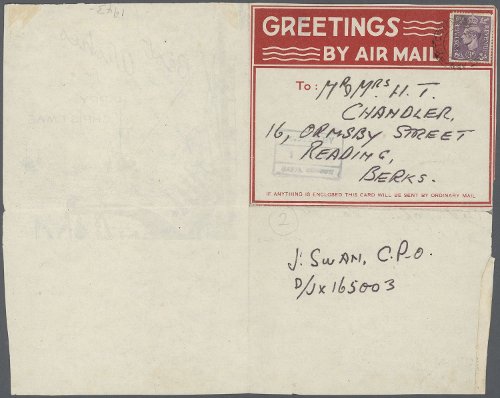 1943-
GREETINGS
BY AIR MAIL
To: MR & MRS H. T.
CHANDLER,
16, ORMSBY STREET
READING,
BERKS.
IF ANYTHING IS ENCLOSED THIS CARD WILL BE SENT BY ORDINARY MAIL
2
J. SWAN, C.P.O.
D/JX 165003